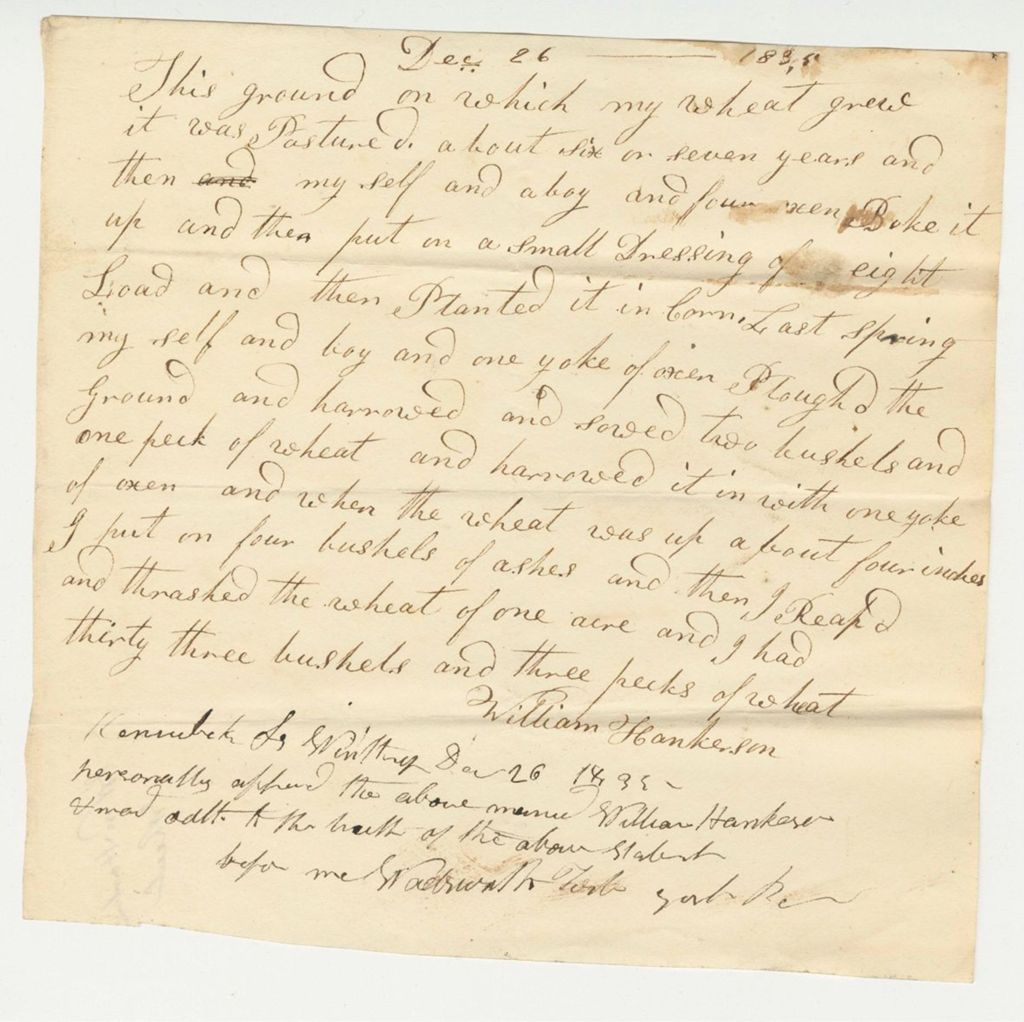 Dec. 26 1835
This ground on which my wheat grew
it was Pastured. about six or seven years and
then and my self and a boy and four oxen Boke it
up and then put on a small Dressing of eight
Load and then Planted it in Corn, Last spring
my self and boy and one yoke of oxen Plough'd the
Ground and harrowed and sowed two bushels and
one peck of wheat and harrowed it in with one yoke
of oxen and when the wheat was up about four inches
I put on four bushels of ashes and then I Reap'd
and thrashed the wheat of one acre and I had
thirty three bushels and three pecks of wheat
William Hankerson
Kennebek Ss Winthrop Dec 26 1835
personally appeared the above William Hankerson
& mad oath to the truth of the above
before me Wadsworth